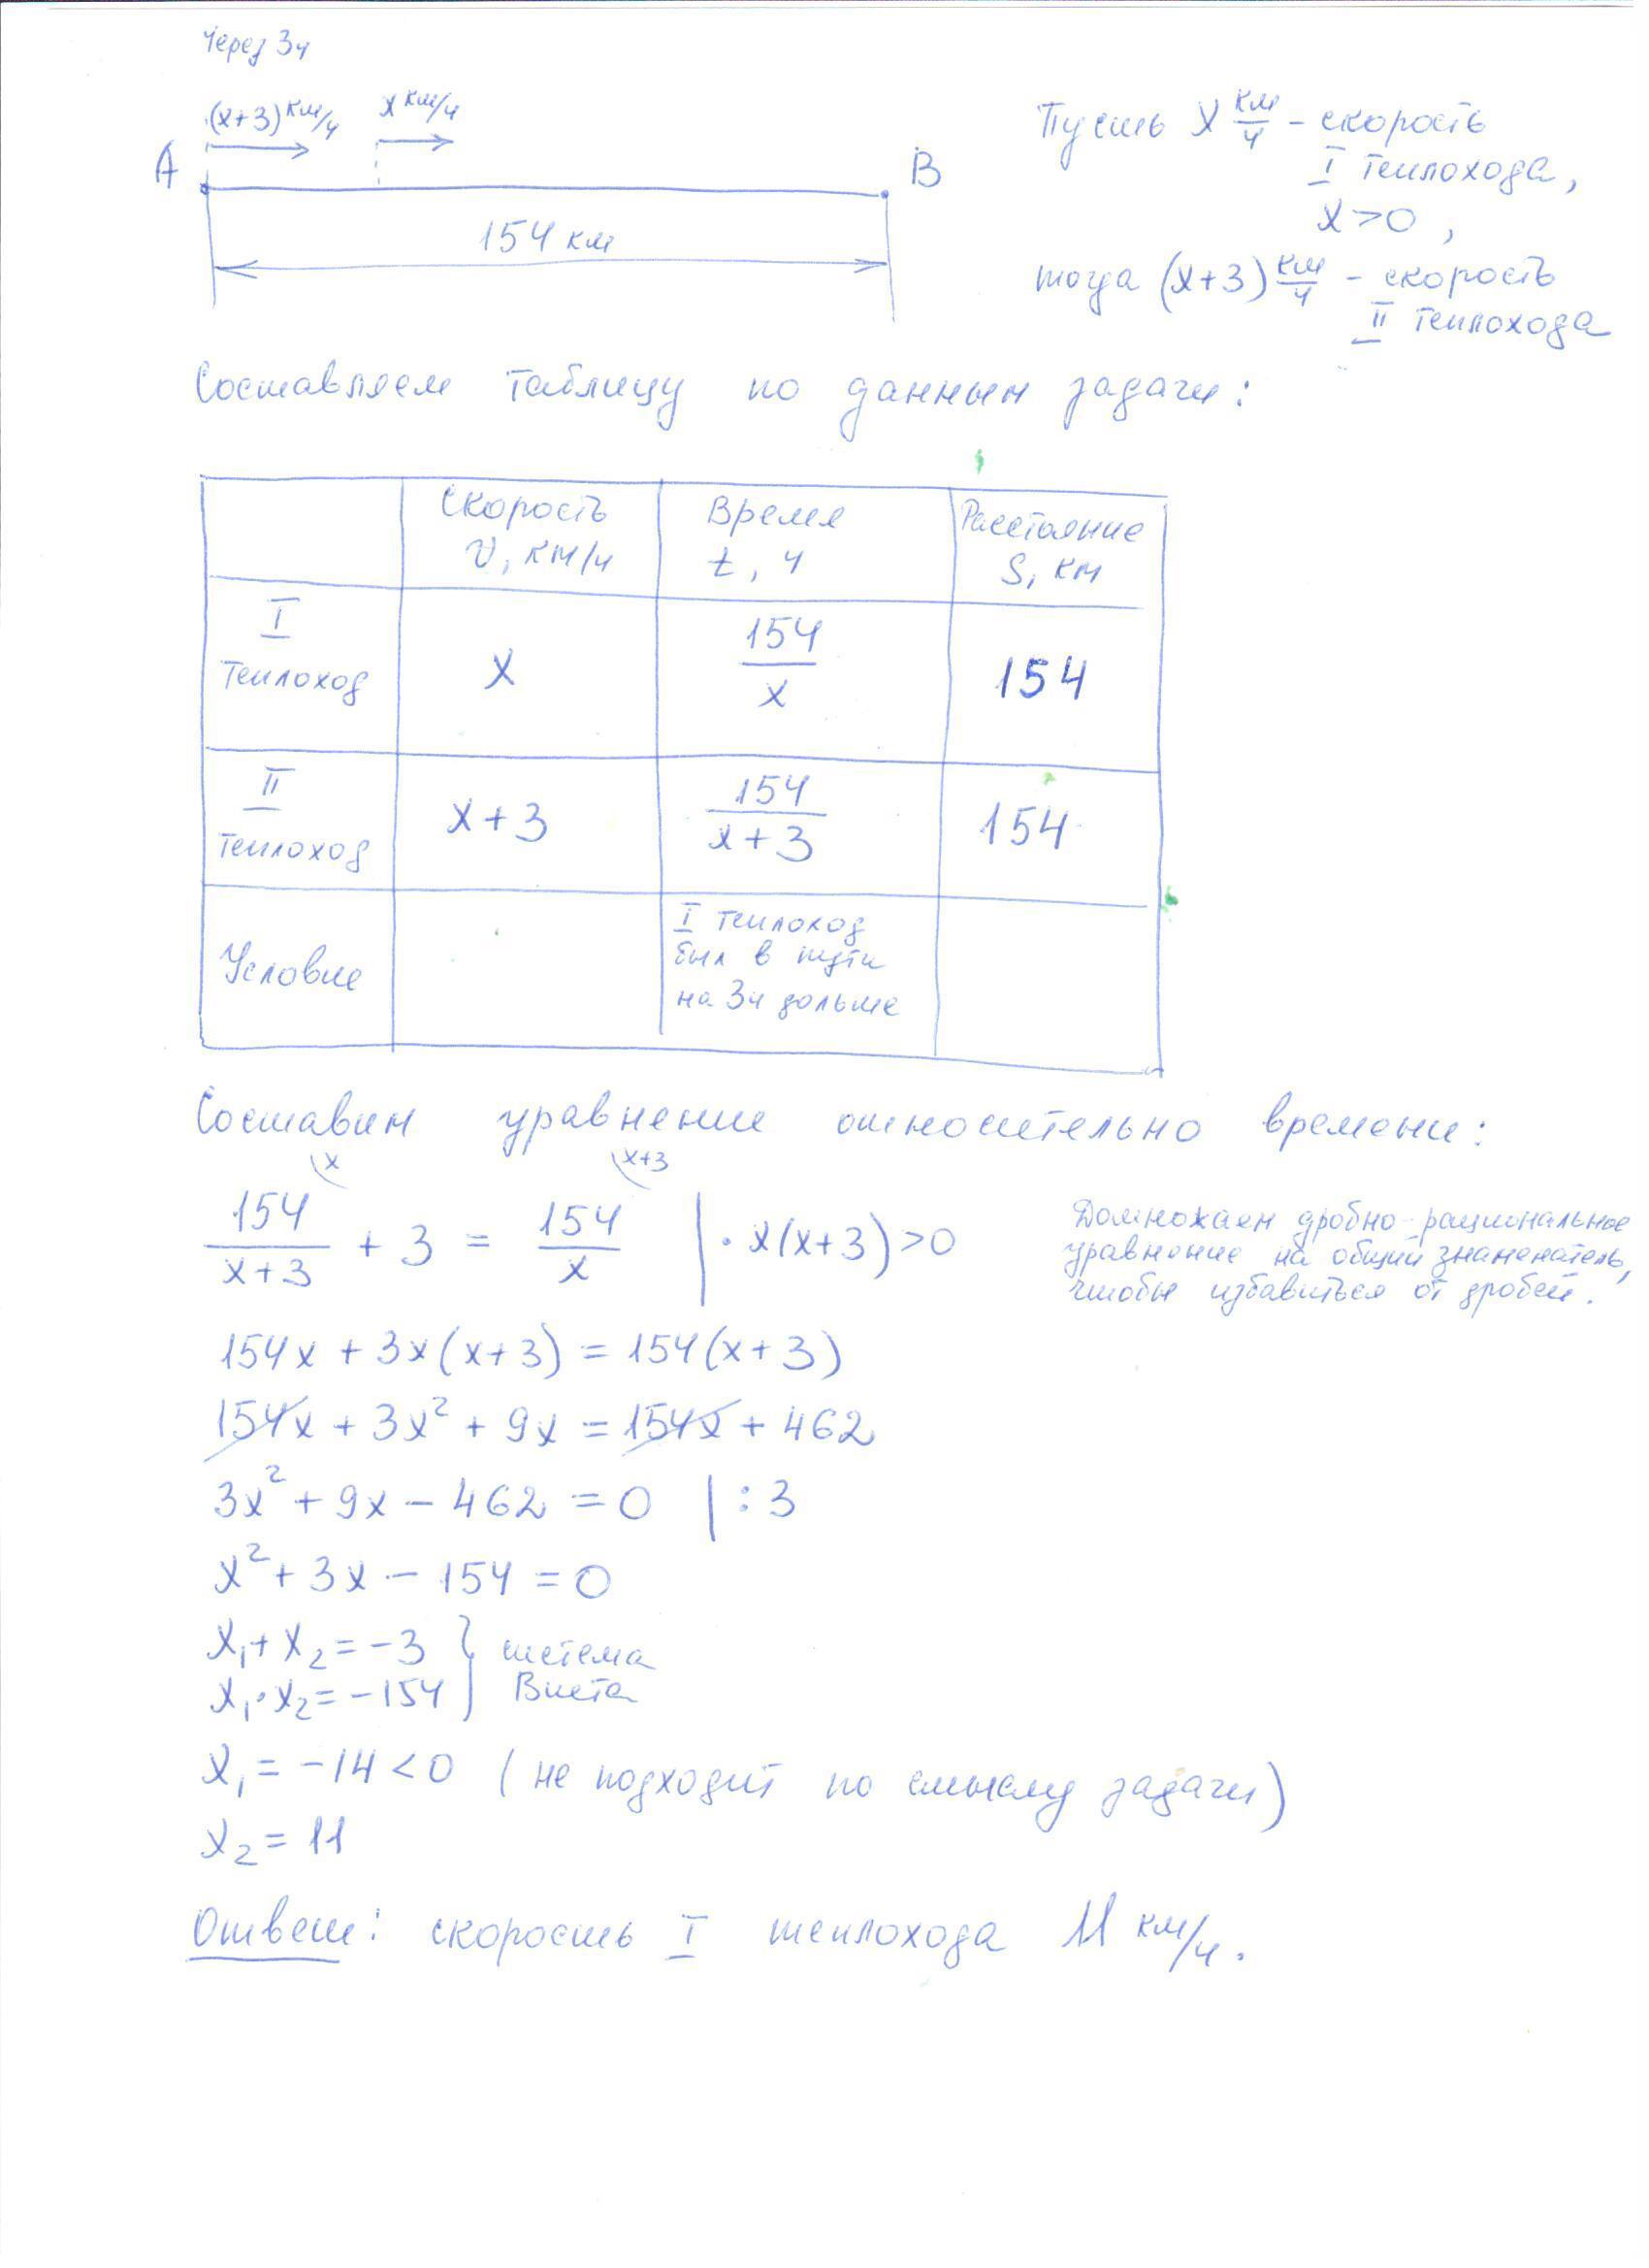 Через 3ч
(x+3) км/ч x км/ч
A B
154 км
Пусть x км/ч - скорость
I теплохода,
x>0,
тогда (x+3) км/ч - скорость
II теплохода
Составляем таблицу по данным задачи:
Скорость Время Расстояние
v, км/ч t, ч S, км
I
теплоход x 154/x 154
II
теплоход x+3 154/(x+3) 154
Условие
I теплоход
был в пути
на 3ч дольше
Составим уравнение относительно времени:
\x \x+3
154/(x+3) + 3 = 154/x | · x(x+3)>0
Домножаем дробно-рациональное
уравнение на общий знаменатель,
чтобы избавиться от дробей.
154x + 3x(x+3) = 154(x+3)
154x + 3x² + 9x = 154x + 462
3x² + 9x - 462 = 0 | : 3
x² + 3x - 154 = 0
x₁+x₂ = -3 } система
x₁·x₂ = -154 } Виета
x₁ = -14 < 0 (не подходит по смыслу задачи)
x₂ = 11
Ответ: скорость I теплохода 11 км/ч.